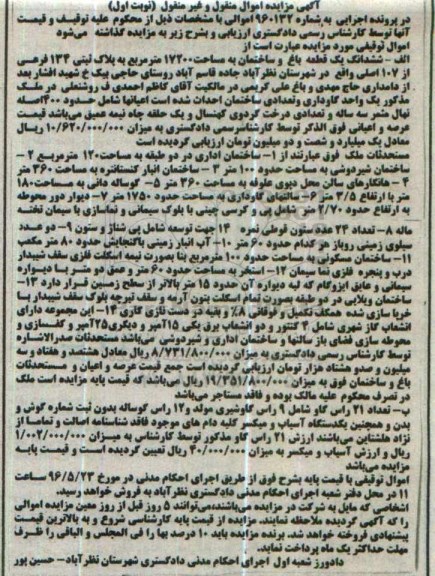 آگهی مزایده اموال منقول و غیر منقول (نوبت اول)
در پرونده اجرایی به شماره ۹۶۰۱۳۲ اموالی با مشخصات ذیل از محکوم علیه توقیف و قیمت
آنها توسط کارشناس رسمی دادگستری ارزیابی و بشرح زیر به مزایده گذاشته می‌شود
اموال توقیفی مورد مزایده عبارت است از
الف - ششدانگ یک قطعه باغ و ساختمان به مساحت ۱۷۲۰۰ مترمربع به پلاک ثبتی ۱۳۴ فرعی
از ۱۰۷ اصلی واقع در شهرستان نظرآباد جاده قاسم آباد روستای حاجی بیک خ شهید افشار بعد
از دامداری حاج مهدی و باغ علی کریمی در مالکیت آقای کاظم احمدی ف روشنعلی در ملک
مذکور یک واحد گاوداری وتعدادی ساختمان احداث شده است اعیانها شامل حدود ۴۰۰اصله
نهال مثمر سه ساله و تعدادی درخت گردوی کهنسال و یک حلقه چاه نیمه عمیق می‌باشد قیمت
عرصه و اعیانی فوق الذکر توسط کارشناسرسمی دادگستری به میزان ۱۰/۶۲۰/۰۰۰/۰۰۰ ریال
معادل یک میلیارد و شصت و دو میلیون تومان ارزیابی گردیده است
مستحدثات ملک فوق عبارتند از ۱- ساختمان اداری در دو طبقه به مساحت ۱۲۰ مترمربع ۲-
ساختمان شیردوشی به مساحت حدود ۱۰۰ متر ۳ - ساختمان انبار کنستانتره به مساحت ۳۶۰ متر
۴ - هانگارهای سالن محل دپوی علوفه به مساحت ۳۶۰ متر ۵- گوساله دانی به مساحت ۱۸۰
متر با ارتفاع ۳/۵ متر ۶- سالنهای گاوداری به مساحت حدود ۱۷۵۰ متر ۷- دیوار دور محوطه
به ارتفاع حدود ۲/۷۰ متر شامل پی و کرسی چینی با بلوک سیمانی و نماسازی با سیمان تخته
ماله ۸- تعداد ۲۴ عدد ستون قوطی نمره ۱۴ جهت توسعه شامل پی شناژ و ستون ۹- دو عدد
سیلوی زمینی روباز هر کدام حدود ۶۰ متر ۱۰- آب انبار زمینی باگنجایش حدود ۸۰ متر مکعب
۱۱- ساختمان مسکونی به مساحت حدود ۱۰۰ مترمربع بنا بصورت نیمه اسکلت فلزی سقف شیبدار
درب و پنجره فلزی نما سیمان ۱۲- استخر به مساحت حدود ۶۰ متر و عمق دو متر با دیواره
سیمانی و عایق ایزوگام که لبه دیواره آن حدود ۱۵ متر بالاتر از سطح زمین قرار دارد ۱۳-
ساختمان ویلایی در دو طبقه بصورت تمام اسکلت بتون آرمه و سقف تیرچه بلوک سقف شیبدار با
خرپا سازی شده همکف تکمیل و فوقانی ۸% و بقیه در دست نازی کاری ۱۴- این مجموعه دارای
انشعاب گاز شهری شامل ۴ کنتور و دو انشعاب برق یکی ۱۵آمپر و دیگری ۲۵آمپر و کفسازی و
محوطه سازی فضای باز سالنها و ساختمان اداری و شیردوشی می‌باشد مستحدثات صدرالاشاره
توسط کارشناس رسمی دادگستری به میزان ۸/۷۳۱/۸۰۰/۰۰۰ ریال معادل هشتصد و هفتاد و سه
میلیون و صدو هشتاد هزار تومان ارزیابی گردیده است جمع قیمت عرصه و اعیان و مستحدثات
باغ و ساختمان فوق به میزان ۱۹/۳۵۱/۸۰۰/۰۰۰ ریال می‌باشد که قیمت پایه مزایده است ملک
در تصرف محکوم علیه مالک بوده و فاقد مستاجر می‌باشد
ب- تعداد ۲۱ راس گاو شامل ۹ راس گاوشیری مولد و ۱۲ راس گوساله بدون ثبت شماره گوش و
بدن و همچنین یکدستگاه آسیاب و میکسر کلیه دام های موجود فاقد شناسنامه اصالت و تماما از
نژاد هلشتاین می‌باشند ارزش ۲۱ راس گاو مذکور توسط کارشناس به میزان ۱/۰۰۲/۰۰۰/۰۰۰
ریال و ارزش آسیاب و میکسر به میزان ۴۰/۰۰۰/۰۰۰ ریال تعیین گردیده است و قیمت پایه
مزایده می‌باشد
اموال توقیفی با قیمت پایه بشرح فوق از طریق اجرای احکام مدنی در مورخ ۹۶/۵/۲۳ ساعت
۱۱ در محل دفتر شعبه اجرای احکام مدنی دادگستری نظرآباد به فروش خواهد رسید.
اشخاصی که مایل به شرکت در مزایده می‌باشند،می‌توانند ۵ روز قبل از روز معین مزایده اموالی
را که آگهی گردیده ملاحظه نمایند. مزایده از قیمت پایه کارشناسی شروع و به بالاترین قیمت
پیشنهادی فروخته خواهد شد. برنده مزایده باید ۱۰ درصد بها را فی المجلس و الباقی را ظرف
مهلت حداکثر یک ماه پرداخت نماید.
دادورز شعبه اول اجرای احکام مدنی دادگستری شهرستان نظرآباد- حسین پور